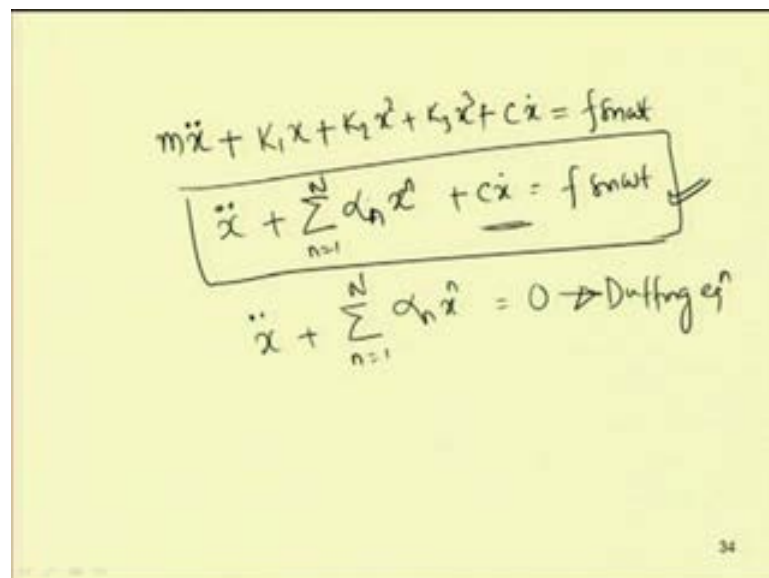 mẍ + K₁x + K₂x² + K₃x³ + cẋ = f sinωt
ẍ + ∑ₙ₌₁ᴺ αₙ xⁿ + cẋ = f sinωt
ẍ + ∑ₙ₌₁ᴺ αₙ xⁿ = 0 → Duffing eqⁿ
34